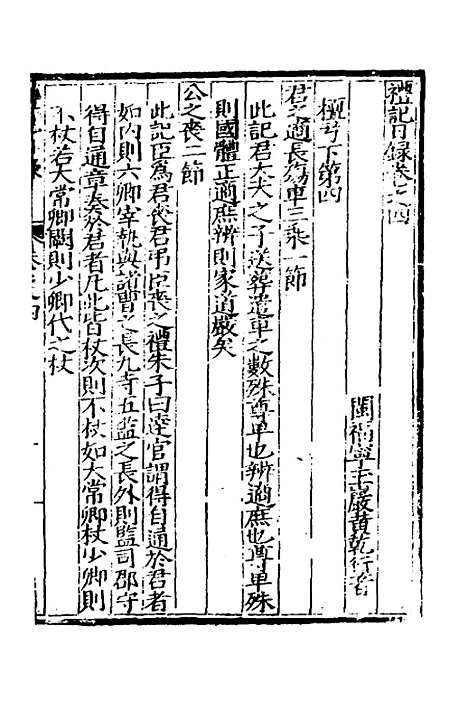 禮記日録卷之四
閩福寧玉巖黄乾行著
檀弓下第四
君之適長殤車三乘一節
此記君大夫之子送葬遣車之數殊尊卑也辨適庶也尊卑殊
則國體正適庶辨則家道嚴矣
公之喪二節
此記臣為君喪君弔臣喪之禮朱子曰達官謂得自通於君者
如内則六卿宰執與諸曹之長九寺五監之長外則監司郡守
得自通章奏於君者凡此皆杖次則不杖如大常卿杖少卿則
不杖若大常卿闕則少卿代之杖
卷之四